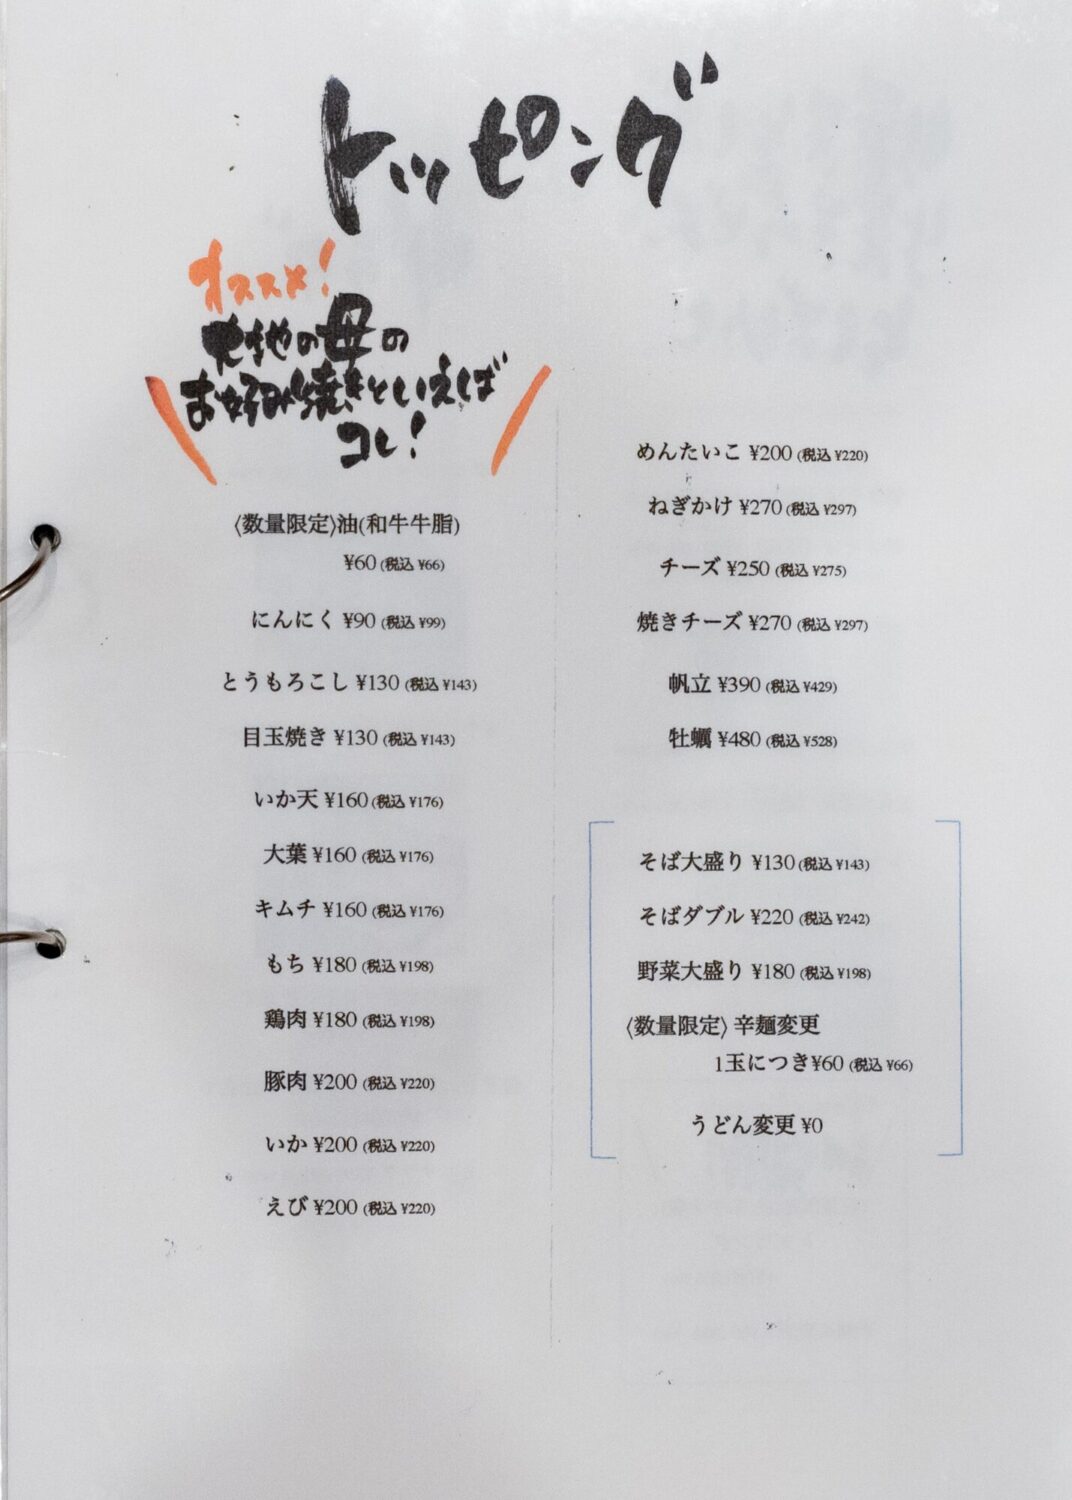 トッピング
オススメ!
の母の
お好み焼きといえば
コレ!
〈数量限定〉油(和牛牛脂)
¥60 (税込 ¥66)
にんにく ¥90 (税込 ¥99)
とうもろこし ¥130 (税込 ¥143)
目玉焼き ¥130 (税込 ¥143)
いか天 ¥160 (税込 ¥176)
大葉 ¥160 (税込 ¥176)
キムチ ¥160 (税込 ¥176)
もち ¥180 (税込 ¥198)
鶏肉 ¥180 (税込 ¥198)
豚肉 ¥200 (税込 ¥220)
いか ¥200 (税込 ¥220)
えび ¥200 (税込 ¥220)
めんたいこ ¥200 (税込 ¥220)
ねぎかけ ¥270 (税込 ¥297)
チーズ ¥250 (税込 ¥275)
焼きチーズ ¥270 (税込 ¥297)
帆立 ¥390 (税込 ¥429)
牡蠣 ¥480 (税込 ¥528)
そば大盛り ¥130 (税込 ¥143)
そばダブル ¥220 (税込 ¥242)
野菜大盛り ¥180 (税込 ¥198)
〈数量限定〉 辛麺変更
1玉につき¥60 (税込 ¥66)
うどん変更 ¥0